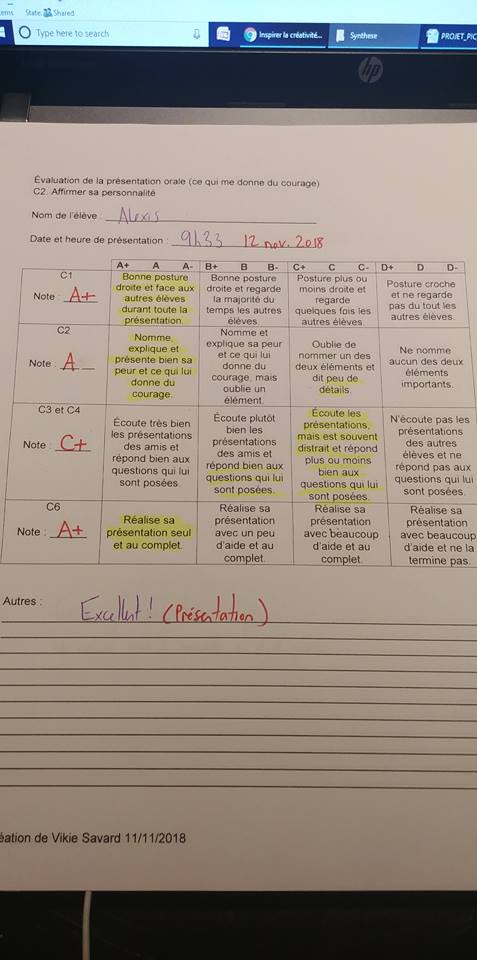 tems State: Shared
Type here to search
Inspirer la créativité...
Synthese
PROJET_PIC
hp
Évaluation de la présentation orale (ce qui me donne du courage)
C2. Affirmer sa personnalité
Nom de l'élève : Alexis
Date et heure de présentation : 9h33 12 nov. 2018
A+ A A- B+ B B- C+ C C- D+ D D-
C1
Note : A+
Bonne posture
droite et face aux
autres élèves
durant toute la
présentation.
Bonne posture
droite et regarde
la majorité du
temps les autres
élèves.
Posture plus ou
moins droite et
regarde
quelques fois les
autres élèves.
Posture croche
et ne regarde
pas du tout les
autres élèves.
C2
Note : A
Nomme,
explique et
présente bien sa
peur et ce qui lui
donne du
courage.
Nomme et
explique sa peur
et ce qui lui
donne du
courage, mais
oublie un
élément.
Oublie de
nommer un des
deux éléments et
dit peu de
détails.
Ne nomme
aucun des deux
éléments
importants.
C3 et C4
Note : C+
Écoute très bien
les présentations
des amis et
répond bien aux
questions qui lui
sont posées.
Écoute plutôt
bien les
présentations
des amis et
répond bien aux
questions qui lui
sont posées.
Écoute les
présentations,
mais est souvent
distrait et répond
plus ou moins
bien aux
questions qui lui
sont posées.
N'écoute pas les
présentations
des autres
élèves et ne
répond pas aux
questions qui lui
sont posées.
C6
Note : A+
Réalise sa
présentation seul
et au complet.
Réalise sa
présentation
avec un peu
d'aide et au
complet.
Réalise sa
présentation
avec beaucoup
d'aide et au
complet.
Réalise sa
présentation
avec beaucoup
d'aide et ne la
termine pas.
Autres :
Excellent! (Présentation)
éation de Vikie Savard 11/11/2018